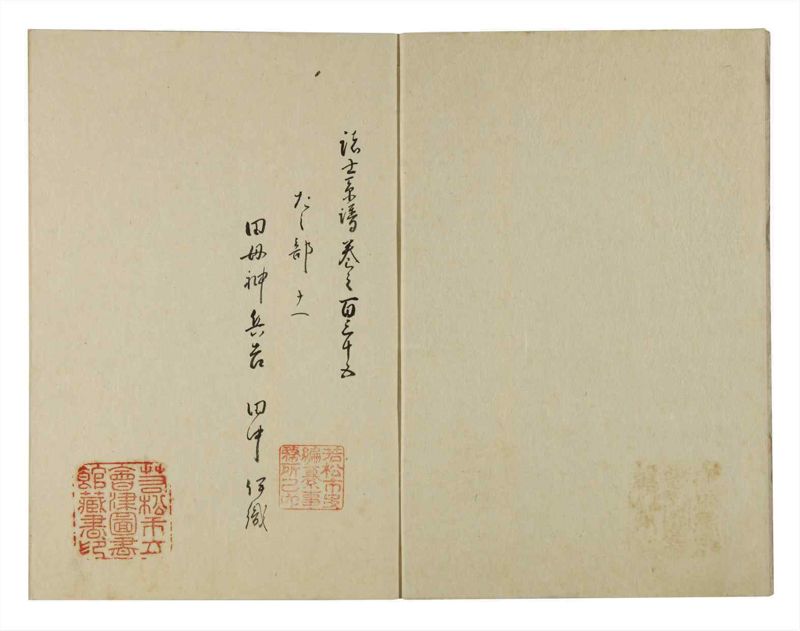 諸士系譜 巻之百三十五
た之部 十一
田母神兵吉 田中伊織
若松市史
編纂事
務所之印
若松市立
會津圖書
館藏書印